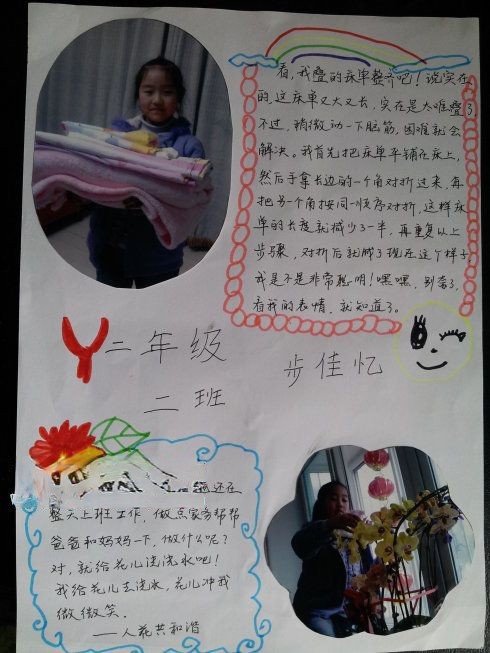 看,我叠的床单整齐吧!说实在
的,这床单又大又长,实在是太难叠了
不过,稍微动一下脑筋,困难就会
解决。我首先把床单平铺在床上,
然后手拿长边的一个角对折过来,再
把另一个角按同一顺序对折,这样床
单的长度就减少了一半,再重复以上
步骤,对折后就成了现在这个样子
我是不是非常聪明!嘿嘿,别夸了,
看我的表情,就知道了。
二年级
二班
步佳忆
还在
整天上班工作,做点家务帮帮
爸爸和妈妈一下,做什么呢?
对,就给花儿浇浇水吧!
我给花儿去浇水,花儿冲我
微微笑.
——人花共和谐